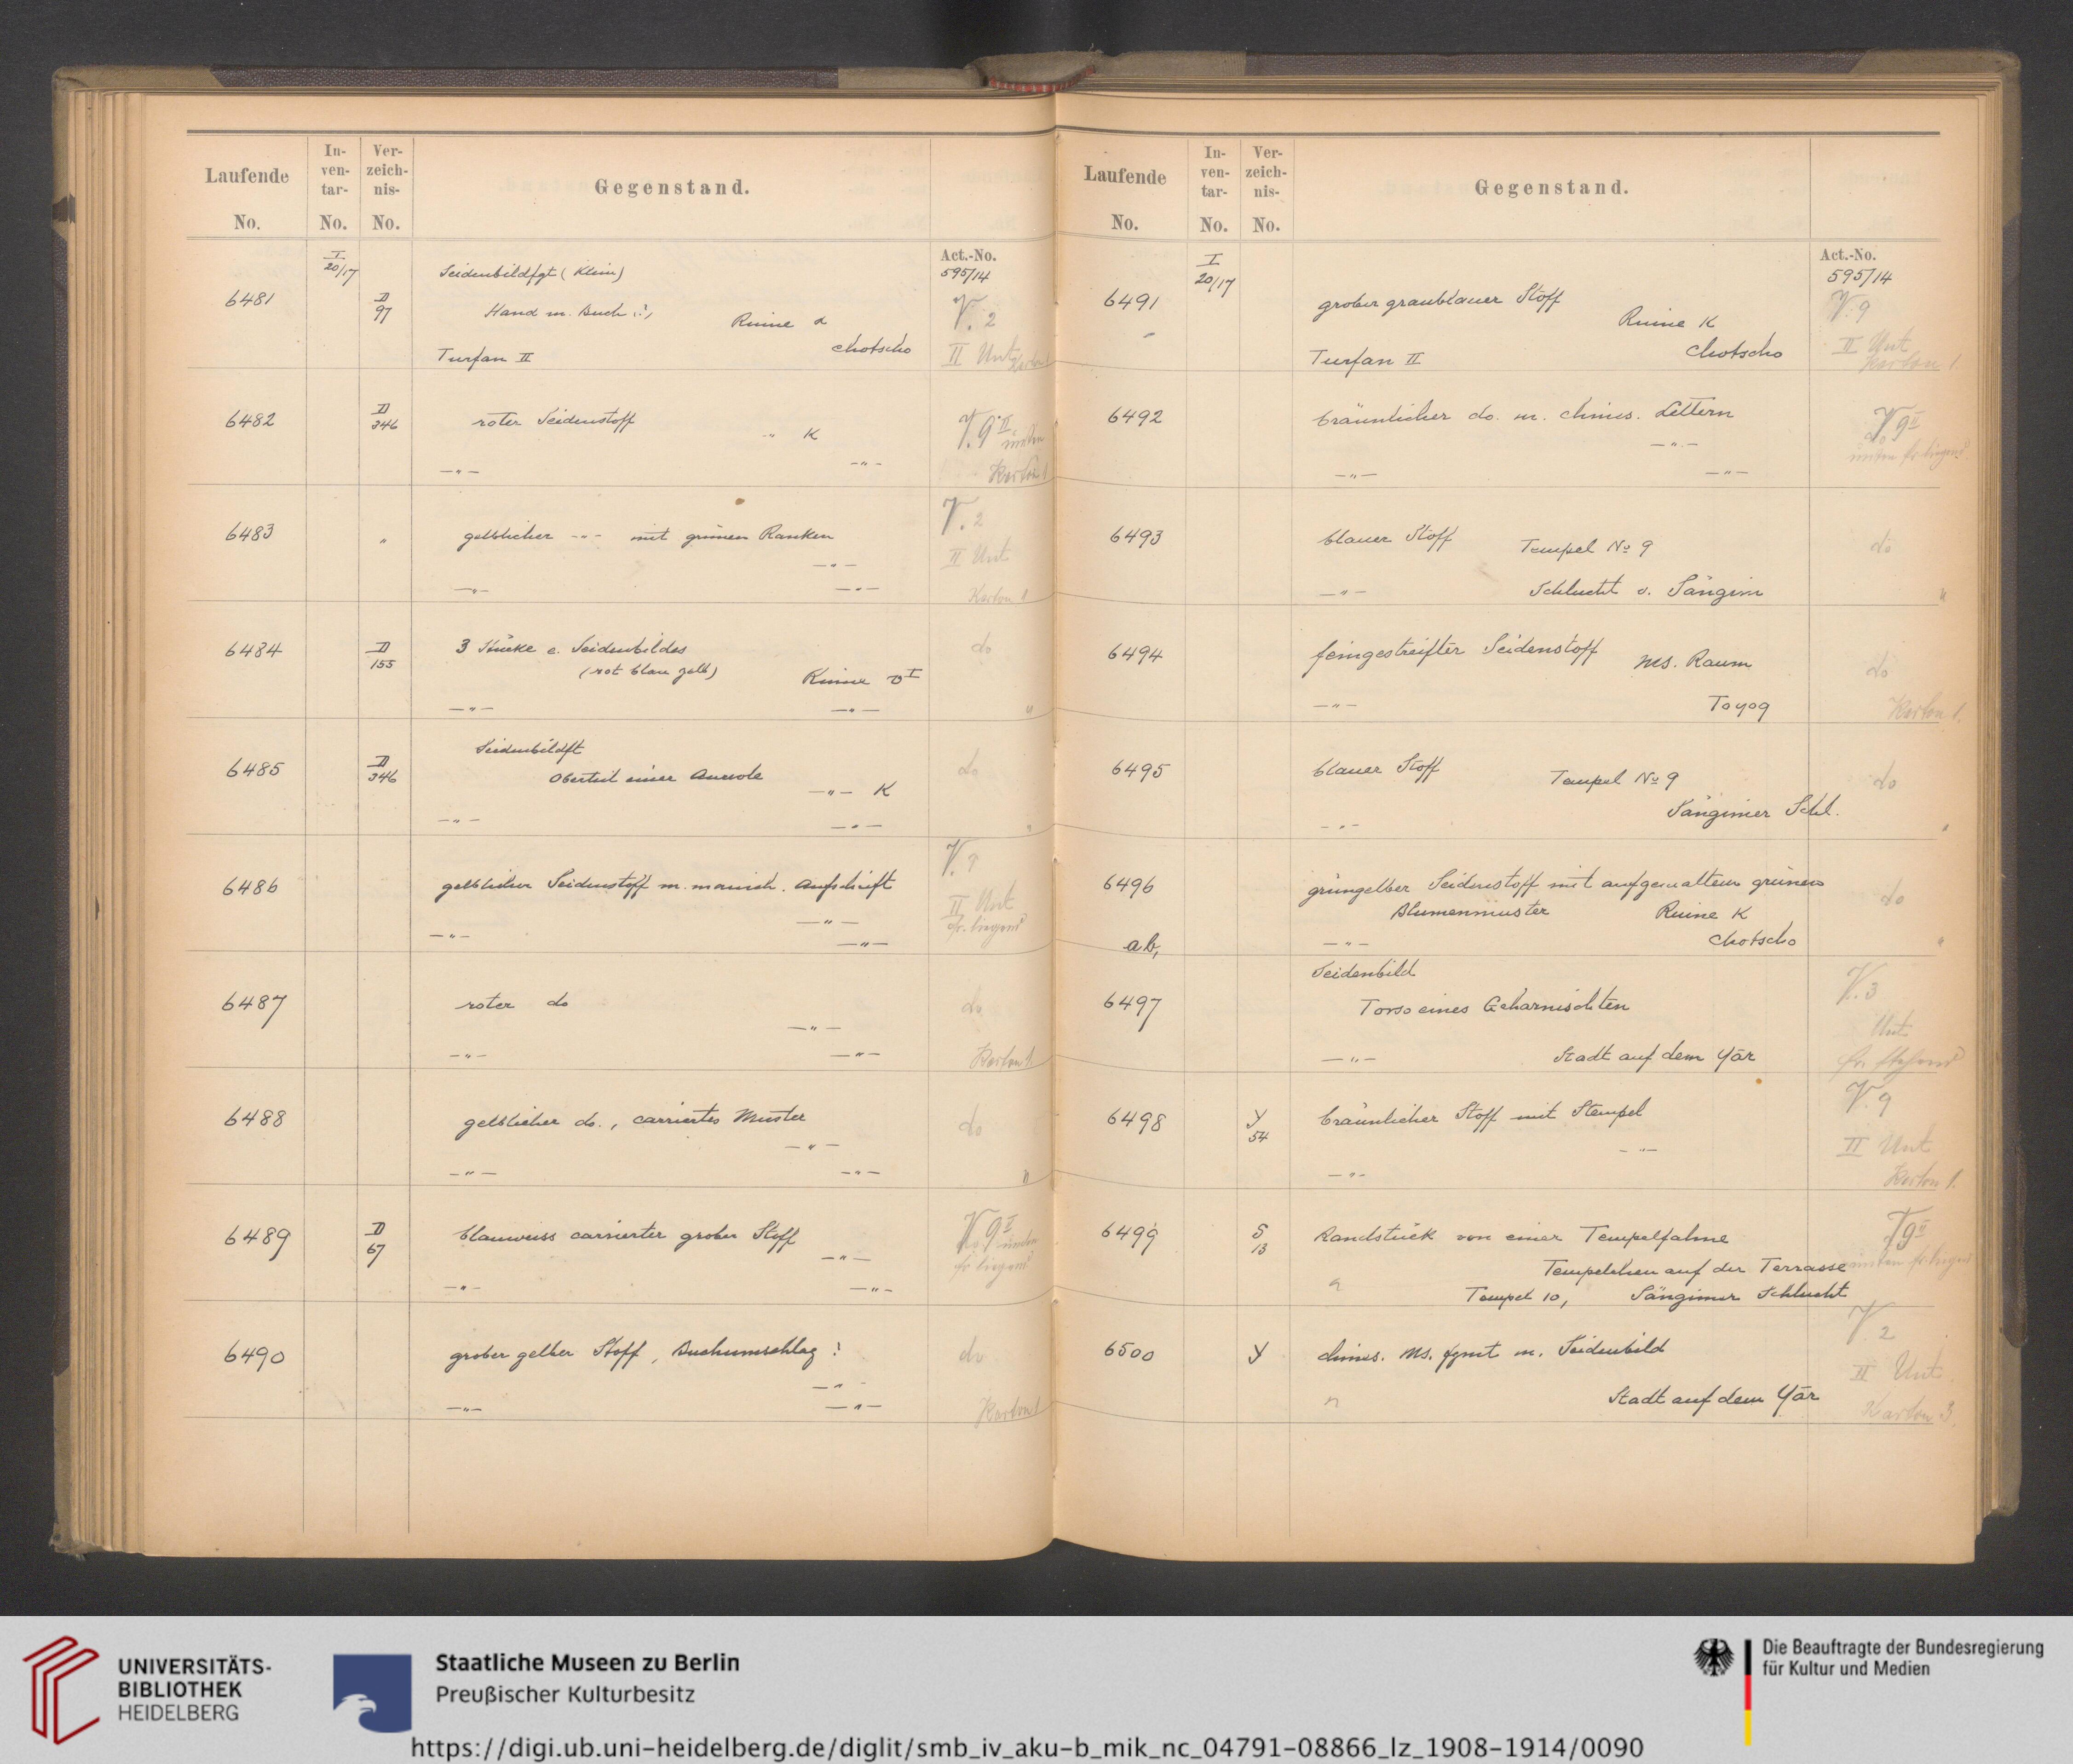 Laufende No.
In-ven-tar- No.
Ver-zeich-nis- No.
Gegenstand.
Act.-No.
I 20/17
595/14
6481
D 97
Seidenbildfgt (Klein)
Hand m. Buch
Ruine α
V. 2
Turfan II
Chotscho
II Unt
6482
D 346
roter Seidenstoff
" K
V. 9 II unten
—"—
—"—
Karton 1
6483
"
gelblicher —"— mit grünen Ranken
—"—
V. 2
II Unt
—"—
—"—
Karton 1
6484
D 155
3 Stücke e. Seidenbildes
do
(rot blau gelb)
Ruine D I
—"—
—"—
"
6485
D 346
Seidenbildft
Oberteil einer Aureole
do
—"— K
—"—
—"—
"
6486
gelblicher Seidenstoff m. manich. Aufschrift
—"—
II Unt
fr. liegend
—"—
—"—
6487
roter do
do
—"—
—"—
—"—
Karton 1
6488
gelblicher do., carriertes Muster
do
—"—
—"—
—"—
"
6489
D 67
blauweiss carrierter grober Stoff
V. 9 II unten
—"—
fr liegend
—"—
—"—
6490
grober gelber Stoff, Buchumschlag !
do
—"—
—"—
—"—
Karton 1
Laufende No.
In-ven-tar- No.
Ver-zeich-nis- No.
Gegenstand.
Act.-No.
I 20/17
595/14
6491
grober graublauer Stoff
V. 9
Ruine K
Turfan II
Chotscho
II Unt
Karton 1
6492
bräunlicher do. m. chines. Lettern
V. 9 II
—"—
unten fr. liegend
—"—
—"—
6493
blauer Stoff
Tempel No 9
do
—"—
Schlucht v. Sängim
"
6494
feingestreifter Seidenstoff
Ms. Raum
do
—"—
Toyoq
Karton 1.
6495
blauer Stoff
Tempel No 9
do
Sängimer Schl.
—"—
"
6496
grüngelber Seidenstoff mit aufgemaltem grünen
do
Blumenmuster
Ruine K
a b,
—"—
Chotscho
"
6497
Seidenbild
Torso eines Geharnischten
V. 3
Unt.
—"—
Stadt auf dem Yār
fr. stehend
6498
Y 54
bräunlicher Stoff mit Stempel
V. 9
—"—
II Unt
—"—
Karton 1.
6499
S 13
Randstück von einer Tempelfahne
V 9 II
Tempelchen auf der Terrasse
unten fr. liegend
"
Tempel 10, Sängimer Schlucht
6500
Y
chines. Ms. fgmt m. Seidenbild
V. 2
II Unt.
"
Stadt auf dem Yār
Karton 3.
UNIVERSITÄTS-
BIBLIOTHEK
HEIDELBERG
Staatliche Museen zu Berlin
Preußischer Kulturbesitz
Die Beauftragte der Bundesregierung
für Kultur und Medien
https://digi.ub.uni-heidelberg.de/diglit/smb_iv_aku-b_mik_nc_04791-08866_lz_1908-1914/0090